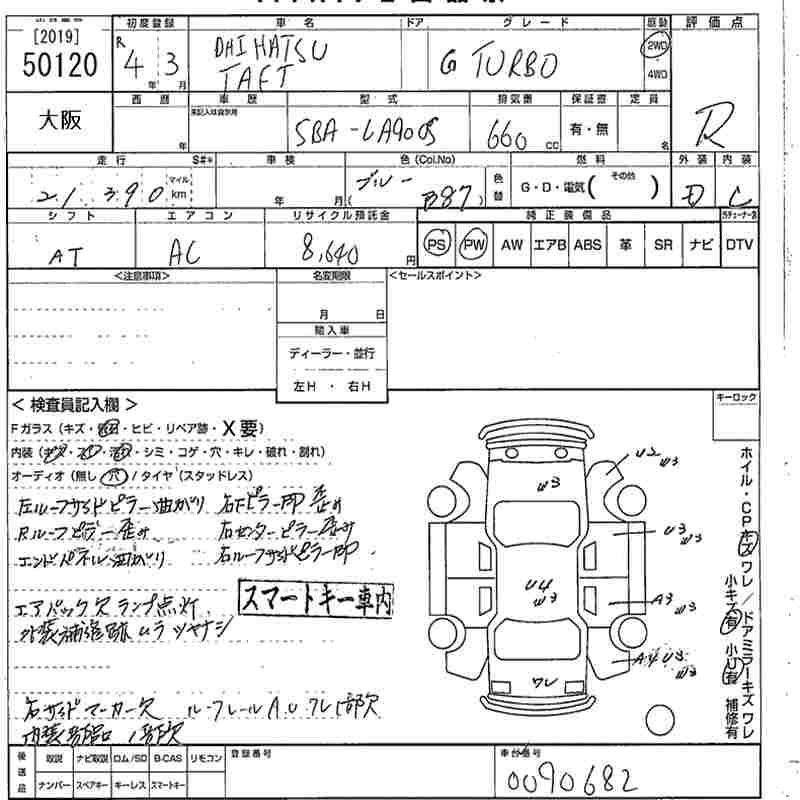 [2019]
50120
初度登録
R 4 年 3 月
車名
DAIHATSU
TAFT
ドア
グレード
G TURBO
駆動
2WD
4WD
評価点
R
大阪
西暦
年
車歴
未記入は自家用
型式
5BA-LA900S
排気量
660 cc
保証書
有・無
定員
名
走行 S#*
21 390 マイル km
車検
年 月
色(Col.No)
ブルー
(B87)
色替
燃料
G・D・電気( その他 )
外装
D
内装
C
シフト
AT
エアコン
AC
リサイクル預託金
8,640 円
純正装備品
PS PW AW エアB ABS 革 SR ナビ DTV
<注意事項>
名変期限
月 日
輸入車
ディーラー・並行
左H ・ 右H
<セールスポイント>
キーロック
< 検査員記入欄 >
Fガラス (キズ・飛石・ヒビ・リペア跡・X要)
内装 (キズ・スレ・汚・シミ・コゲ・穴・キレ・破れ・割れ)
オーディオ (無し 穴) / タイヤ (スタッドレス)
左ルーフサイドピラー曲がり 右Fピラー凹 歪み
Rルーフピラー歪み 右センターピラー歪み
エンドパネル曲がり 右ルーフサイドピラー凹
エアバック欠 ランプ点灯
スマートキー車内
外装補修跡ムラ ツヤナシ
右サイドマーカー欠 ルーフレールA.U ワレ1部欠
1部欠
U2
W3
W3
U3
W3
U4
W3
A3
W3
A4 U3
W3
ワレ
ホイル・CPキズ ワレ / ドアミラーキズ ワレ
小キズ有 小U有 補修有
後送品
取説 ナビ取説 ロム/SD B-CAS リモコン
ナンバー スペアキー キーレス スマートキー
登録番号
車台番号
0090682